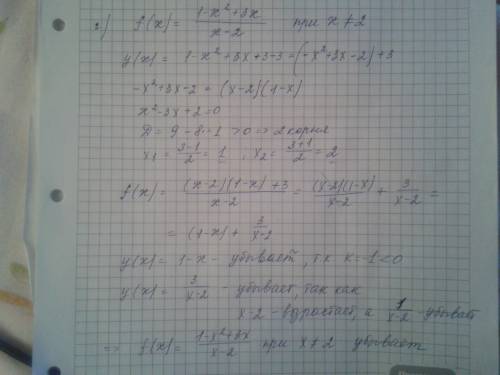 2) f(x) = (1-x²+3x)/(x-2) при x≠2
y(x) = 1-x²+3x+3-3 = (-x²+3x-2)+3
-x²+3x-2 = (x-2)(1-x)
x²-3x+2=0
D = 9-8=1 >0 => 2 корня
x₁ = (3-1)/2 = 1, x₂ = (3+1)/2 = 2
f(x) = ((x-2)(1-x)+3)/(x-2) = ((x-2)(1-x))/(x-2) + 3/(x-2) =
= (1-x) + 3/(x-2)
y(x) = 1-x - убывает, т.к к=-1<0
y(x) = 3/(x-2) - убывает, так как
x-2 - возрастает, а 1/(x-2) - убывает
=> f(x) = (1-x²+3x)/(x-2) при x≠2 убывает